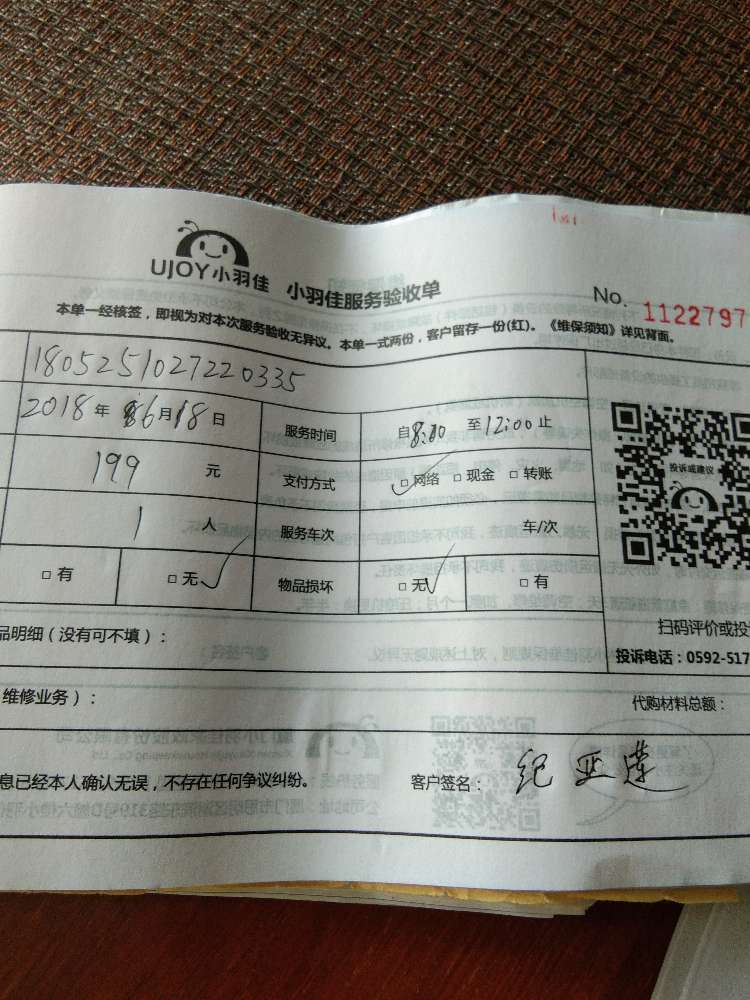 UJOY小羽佳 小羽佳服务验收单
No. 1122797
本单一经核签，即视为对本次服务验收无异议。本单一式两份，客户留存一份(红)。《维保须知》详见背面。
1805251027220335
2018年 6月18日 服务时间 自8:00 至12:00止
199 元 支付方式 ☑网络 □现金 □转账
1 人 服务车次 车/次
□有 □无✓ 物品损坏 □无✓ □有
投诉或建议
品明细（没有可不填）：
扫码评价或投
投诉电话：0592-517
维修业务）：
代购材料总额：
息已经本人确认无误，不存在任何争议纠纷。 客户签名： 纪亚莲